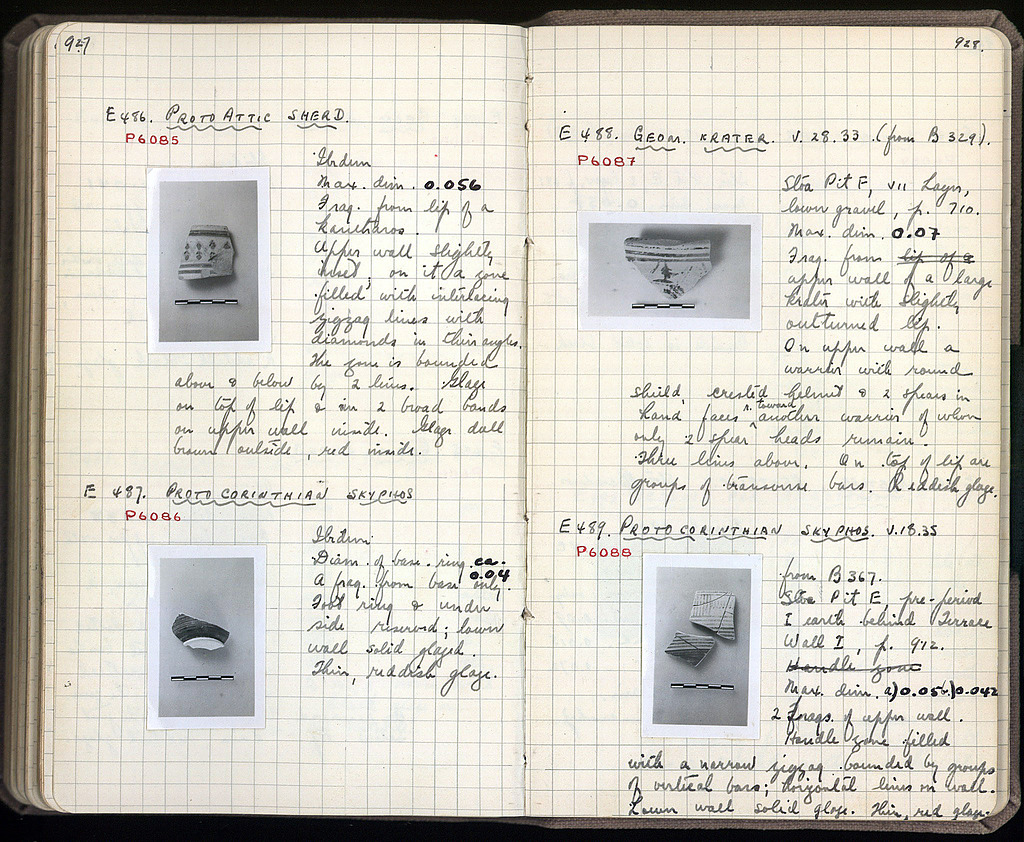 927
E 486. PROTOATTIC SHERD.
P6085
Ibidem
Max. dim. 0.056
Frag. from lip of a
kantharos.
Upper wall slightly
inset, on it a zone
filled with interlacing
zigzag lines with
diamonds in their angles.
The zone is bounded
above & below by 2 lines. Glaze
on top of lip & in 2 broad bands
on upper wall inside. Glaze dull
brown outside, red inside.
E 487. PROTOCORINTHIAN SKYPHOS
P6086
Ibidem
Diam. of base ring ca.
0.04
A frag. from base only.
Foot ring & under
side reserved; lower
wall solid glazed.
Thin, reddish glaze.
928.
E 488. GEOM. KRATER. V.28.33. (from B 329).
P6087
Stoa Pit F, VII Layer,
lower gravel, p. 710.
Max. dim. 0.07
Frag. from lip of a
upper wall of a large
krater with slightly
outturned lip.
On upper wall a
warrior with round
shield, crested helmet & 2 spears in
hand faces r. toward another warrior of whom
only 2 spear heads remain.
Three lines above. On top of lip are
groups of transverse bars. Reddish glaze.
E 489. PROTOCORINTHIAN SKYPHOS. V.18.35
P6088
from B 367.
Stoa Pit E, pre-period
I earth behind Terrace
Wall I, p. 912.
Handle zone
Max. dim. a) 0.056 b) 0.042
2 frags. of upper wall.
Handle zone filled
with a narrow zigzag bounded by groups
of vertical bars; horizontal lines on wall.
Lower wall solid glaze. Thin, red glaze.